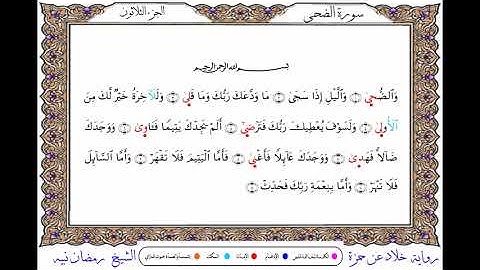 سورة الضحى
الجزء الثلاثون
بسم الله الرحمن الرحيم
وَٱلضُّحَىٰ ۝ وَٱلَّيْلِ إِذَا سَجَىٰ ۝ مَا وَدَّعَكَ رَبُّكَ وَمَا قَلَىٰ ۝ وَلَلْأَخِرَةُ خَيْرٌ لَّكَ مِنَ
ٱلْأُولَىٰ ۝ وَلَسَوْفَ يُعْطِيكَ رَبُّكَ فَتَرْضَىٰ ۝ أَلَمْ يَجِدْكَ يَتِيمًا فَـَٔاوَىٰ ۝ وَوَجَدَكَ
ضَآلًّا فَهَدَىٰ ۝ وَوَجَدَكَ عَآئِلًا فَأَغْنَىٰ ۝ فَأَمَّا ٱلْيَتِيمَ فَلَا تَقْهَرْ ۝ وَأَمَّا ٱلسَّآئِلَ
فَلَا تَنْهَرْ ۝ وَأَمَّا بِنِعْمَةِ رَبِّكَ فَحَدِّثْ ۝
رواية خلاد عن حمزة
الشيخ رمضان نبيه